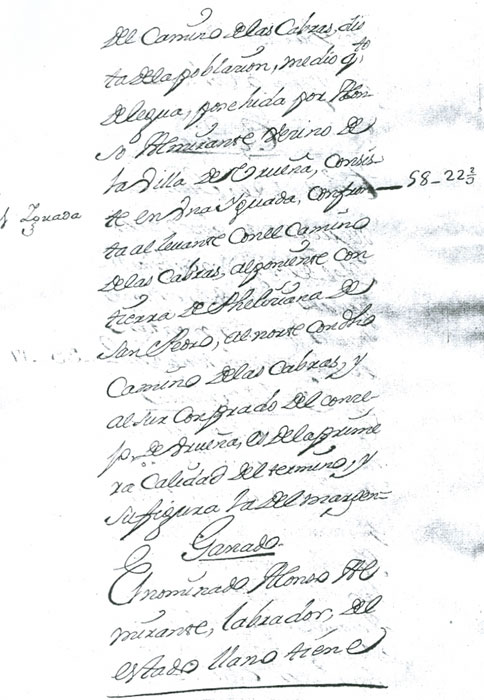 del Camino de las Cabras, dis
ta de la poblazion, medio q.to
de legua, posehida por Alon
so Almirante vezino de
la Villa de Urueña, consis
te en una Yguada, confron 58_22 2/3
1 Yguada
ta al levante con el Camino
de las Cabras, al poniente con
tierra de Pheliziana de
San Pedro, al norte con dho
Camino de las Cabras, y
al sur con prado del conce
jo, de Urueña, es de la prime
ra Calidad del termino, y
su figura la del margen=
Ganado.
El nominado Alonso Al
mirante, labrador, del
estado llano tiene